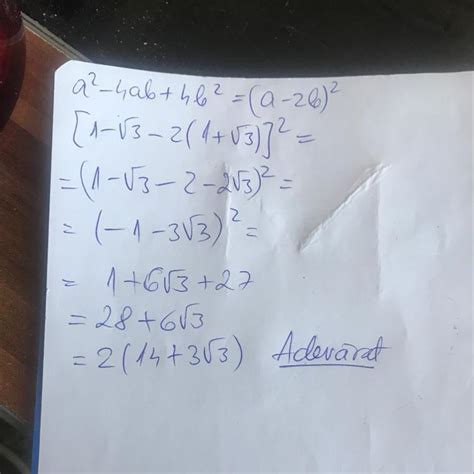 a² - 4ab + 4b² = (a - 2b)²
[1 - √3 - 2(1 + √3)]² =
= (1 - √3 - 2 - 2√3)² =
= (-1 - 3√3)² =
= 1 + 6√3 + 27
= 28 + 6√3
= 2(14 + 3√3) Adevărat